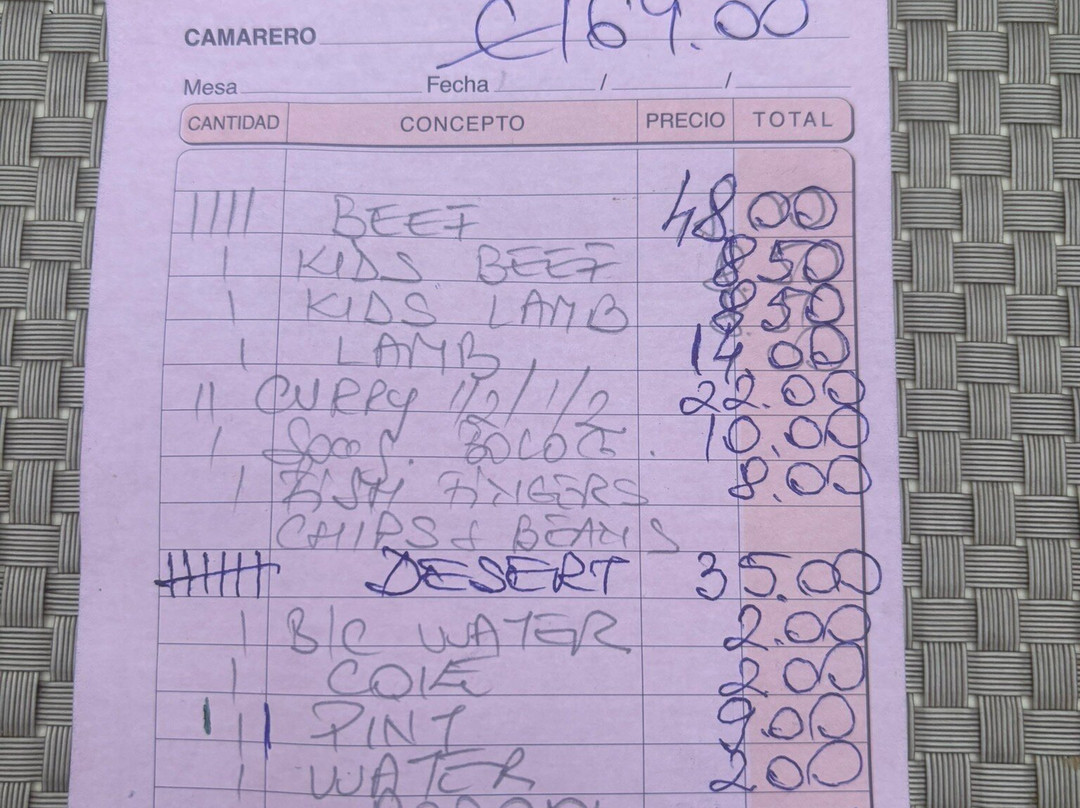 CAMARERO €169.00
Mesa Fecha / /
CANTIDAD CONCEPTO PRECIO TOTAL
IIII BEEF 48.00
1 KIDS BEEF 8.50
1 KIDS LAMB 8.50
1 LAMB 14.00
11 CURRY 1/2/1/2 22.00
1 10.00
1 FISH FINGERS 8.00
CHIPS & BEANS
DESERT 35.00
1 B/C WATER 2.00
1 COKE 2.00
III PINT 9.00
1 WATER 2.00